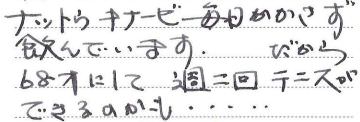 ナットウキナーゼー毎日かかさず
飲んでいます. だから
68才にして週二回テニスが
できるのかも・・・・・